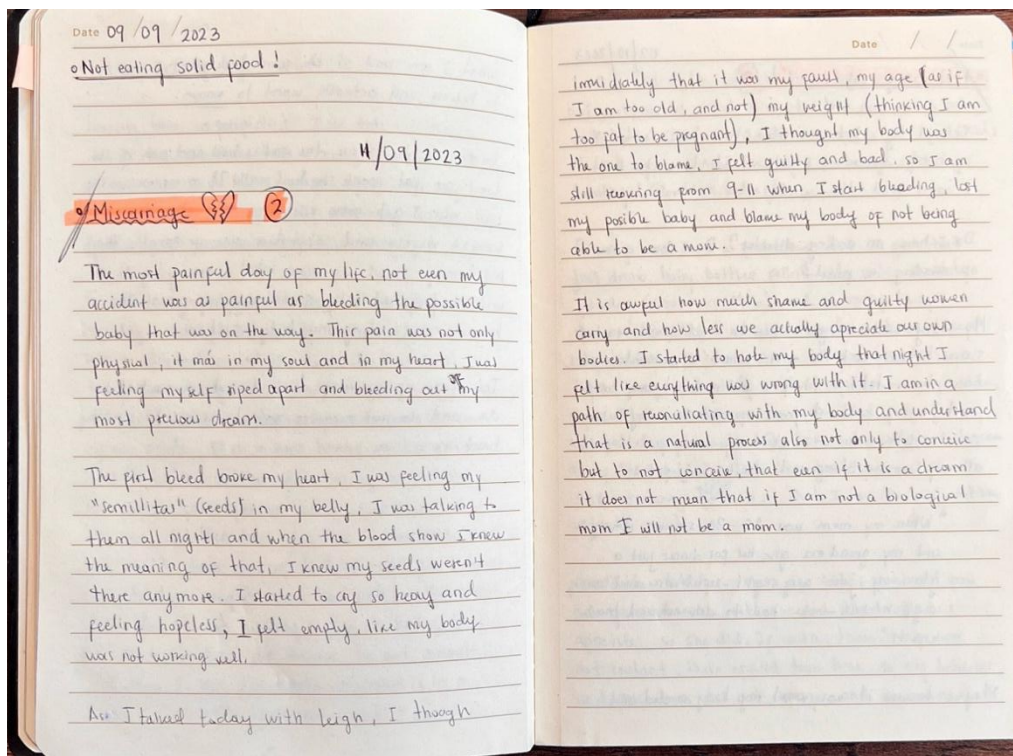 Date 09/09/2023
Not eating solid food!
11/09/2023
Miscarriage 2
The most painful day of my life, not even my
accident was as painful as bleeding the possible
baby that was on the way. This pain was not only
physical, it was in my soul and in my heart, I was
feeling my self riped apart and bleeding out of my
most precious dream.
The first bleed broke my heart, I was feeling my
"semillitas" (seeds) in my belly, I was talking to
them all nights and when the blood show I knew
the meaning of that, I knew my seeds weren't
there anymore. I started to cry so heavy and
feeling hopeless, I felt empty, like my body
was not working well.
As I talked today with Leigh, I though
Date / /
immidiately that it was my fault, my age (as if
I am too old, and not) my weight (thinking I am
too fat to be pregnant), I thought my body was
the one to blame, I felt guilty and bad, so I am
still recovering from 9-11 when I start bleading, lost
my posible baby and blame my body of not being
able to be a mom.
It is awful how much shame and guilty women
carry and how less we actually apreciate our own
bodies. I started to hate my body that night I
felt like everything was wrong with it. I am in a
path of reconciliating with my body and understand
that is a natural process also not only to conceive
but to not conceive, that even if it is a dream
it does not mean that if I am not a biological
mom I will not be a mom.